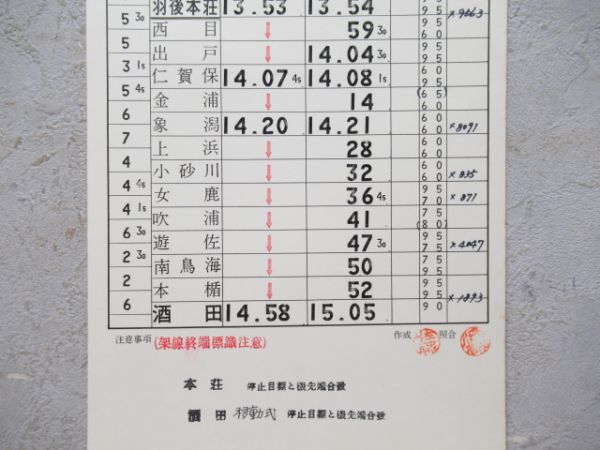 羽後本荘 13.53 13.54 95
5 30 95 ×9663
西目 ↓ 59 30 95
5 60
出戸 ↓ 14.04 30 95
3 15 60
仁賀保 14.07 45 14.08 15 60
5 45 95
金浦 ↓ 14 (65)
6 60
象潟 14.20 14.21 60 ×8091
7 60
上浜 ↓ 28 60
6 60
小砂川 ↓ 32 60 ×835
4 95
女鹿 ↓ 36 45 70 ×871
4 15 75
吹浦 ↓ 41 (80)
6 30 95
遊佐 ↓ 47 30 75 ×4047
2 30 95
南鳥海 ↓ 50 95
2 95
本楯 ↓ 52 95 ×1893
6 95
酒田 14.58 15.05 90
注意事項 (架線終端標識注意) 作成 照合
本荘 停止目標と機先端合致
酒田 移動式 停止目標と機先端合致